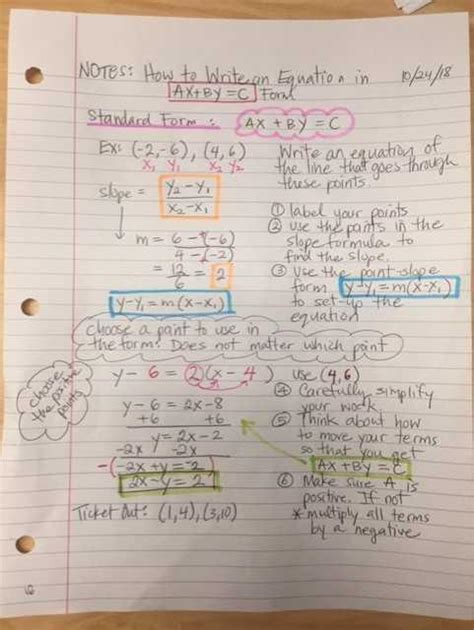 NOTES: How to Write an Equation in 10/24/18
AX+BY=C Form
Standard Form: AX+BY=C
EX: (-2,-6), (4,6)
X₁ Y₁ X₂ Y₂
slope = Y₂-Y₁
X₂-X₁
m = 6-(-6)
4-(-2)
= 12 = 2
6
y-y₁=m(x-x₁)
Write an equation of
the line that goes through
these points.
① label your points
② use the points in the
slope formula to
find the slope.
③ Use the point-slope
form y-y₁=m(x-x₁)
to set-up the
equation
choose a point to use in
the form! Does not matter which point
choose
the positive
points
y-6=2(x-4) use (4,6)
y-6=2x-8
+6 +6
y=2x-2
-2x -2x
-(-2x+y=-2)
2x-y=2
④ Carefully simplify
your work
⑤ Think about how
to move your terms
so that you get
AX+BY=C
⑥ Make sure A is
positive. If not
*multiply all terms
by a negative
Ticket Out: (1,4), (3,10)